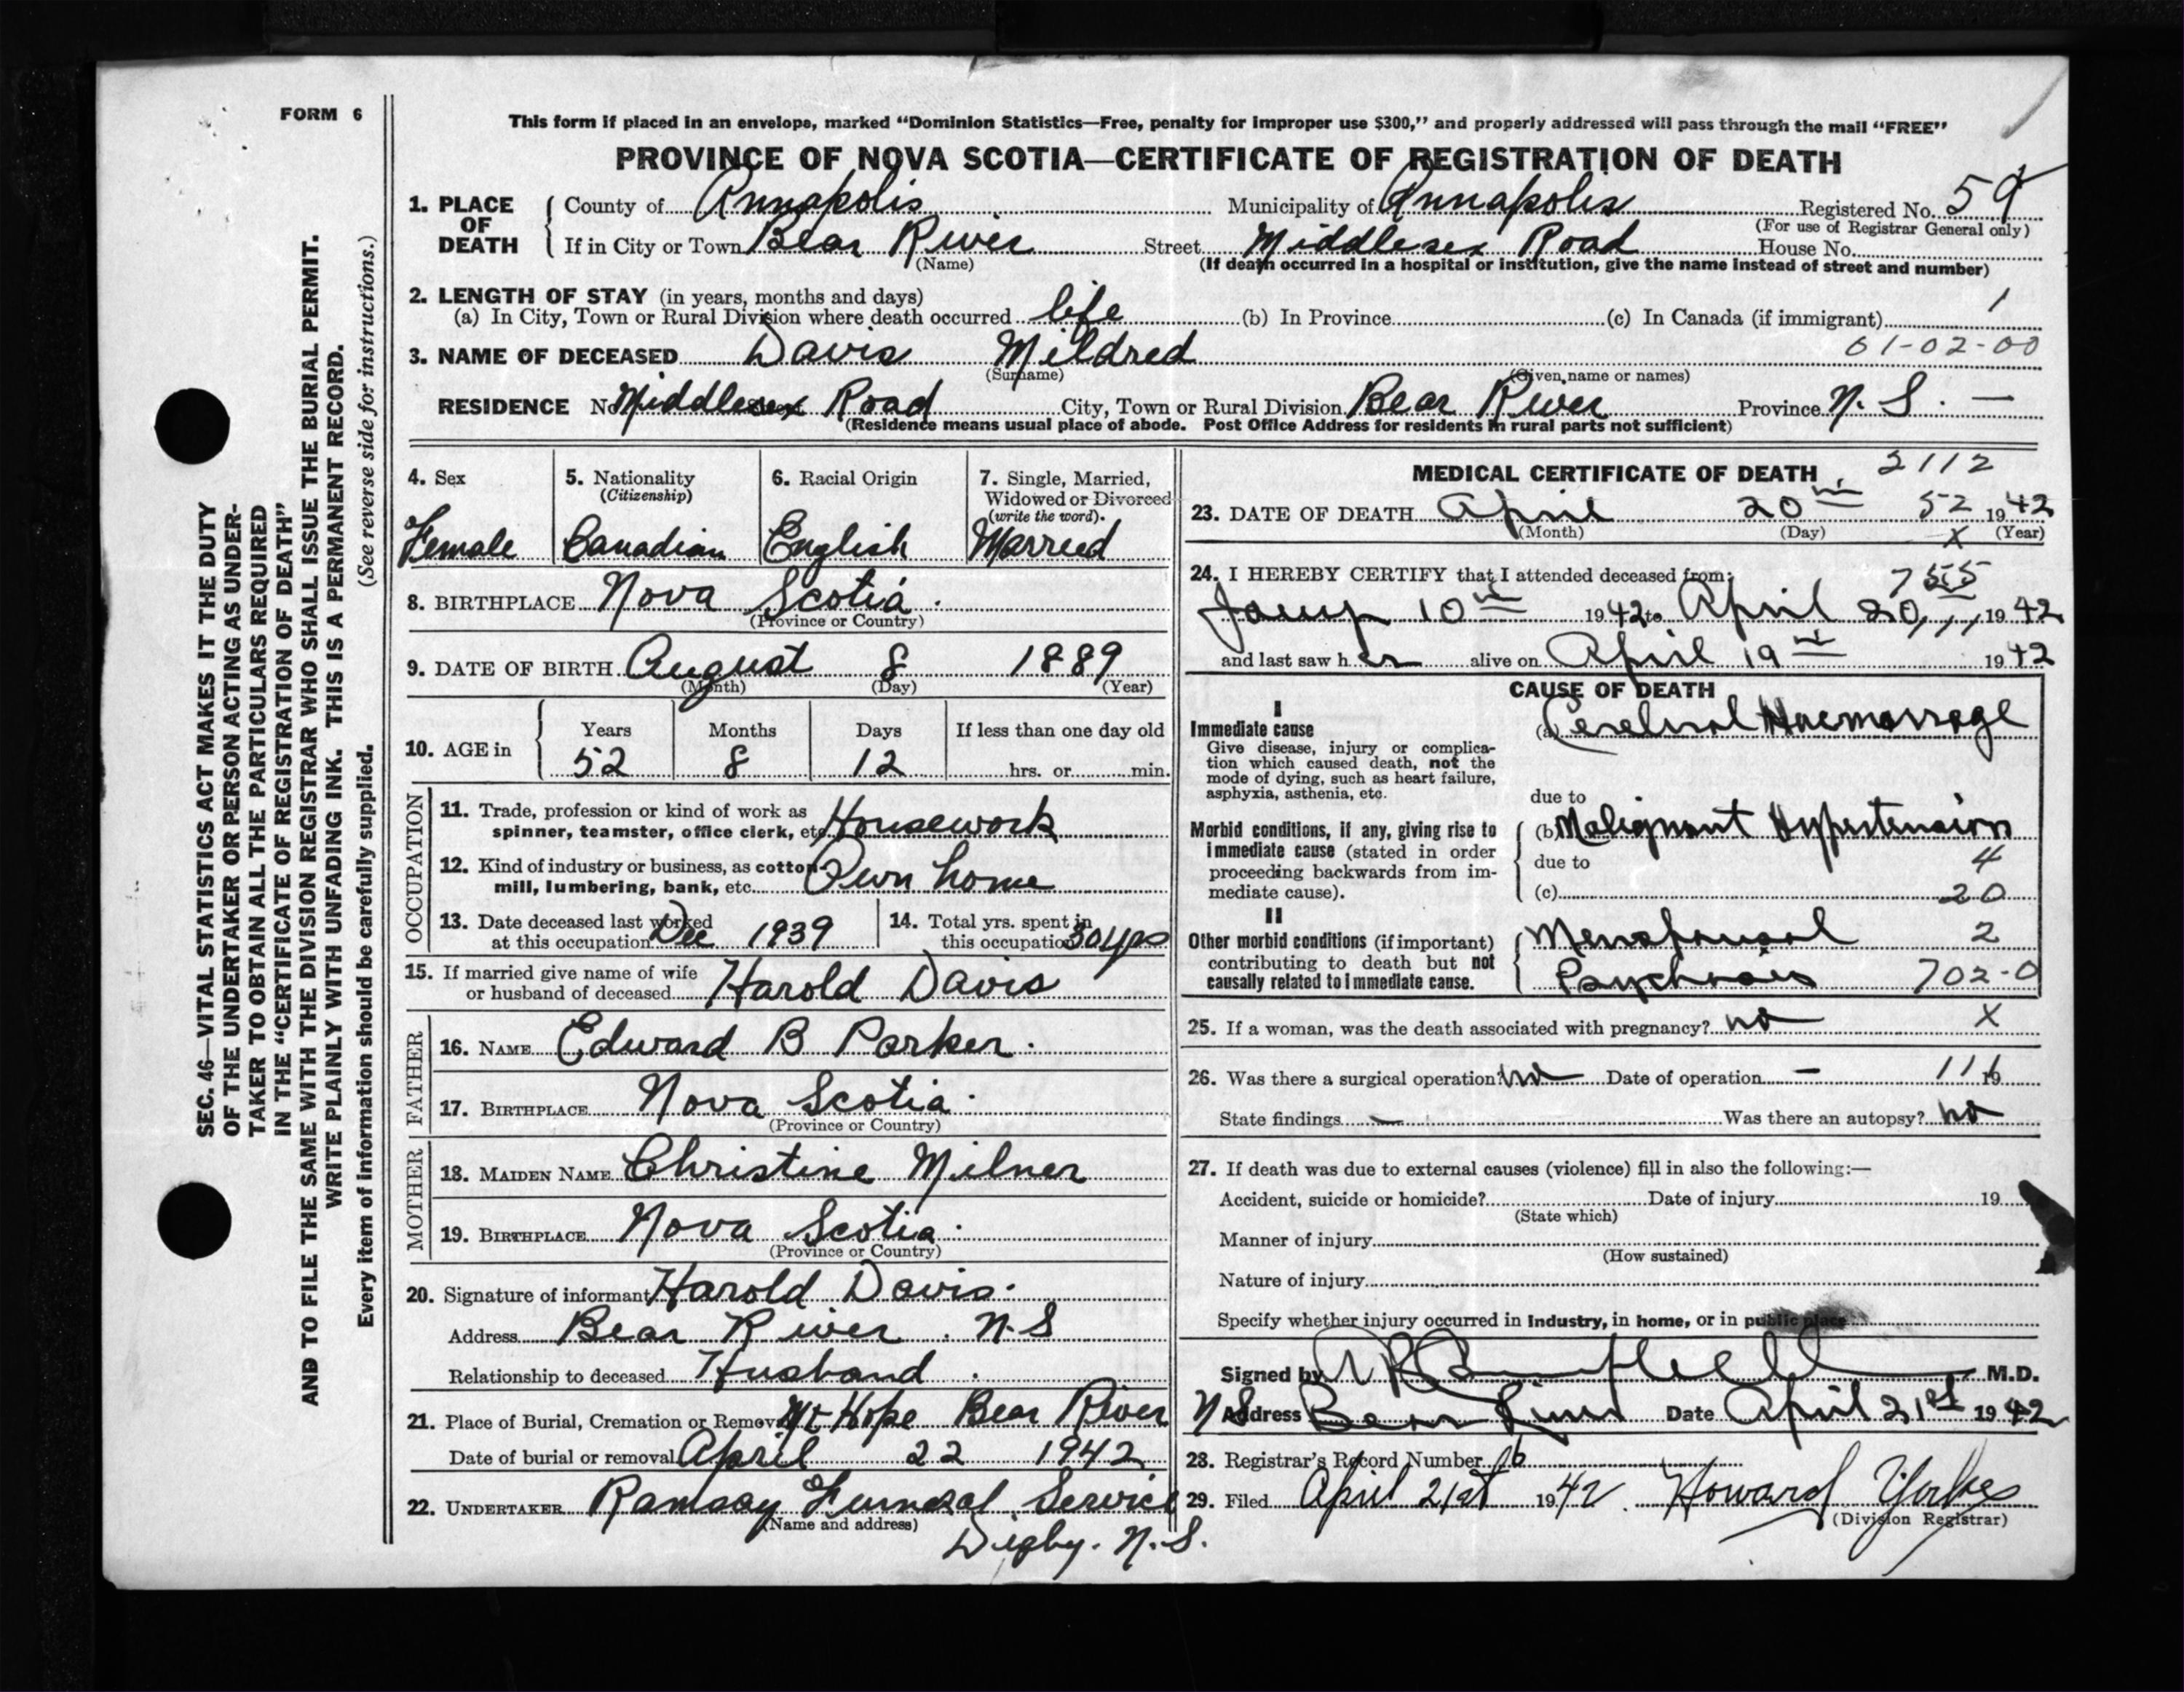 FORM 6
This form if placed in an envelope, marked “Dominion Statistics—Free, penalty for improper use $300,” and properly addressed will pass through the mail “FREE”
PROVINCE OF NOVA SCOTIA—CERTIFICATE OF REGISTRATION OF DEATH
1. PLACE OF DEATH County of Annapolis Municipality of Annapolis Registered No. 59
(For use of Registrar General only)
If in City or Town Bear River Street Middlesex Road House No.
(Name) (If death occurred in a hospital or institution, give the name instead of street and number)
2. LENGTH OF STAY (in years, months and days)
(a) In City, Town or Rural Division where death occurred life (b) In Province (c) In Canada (if immigrant) 1
3. NAME OF DECEASED Davis Mildred 01-02-00
(Surname) (Given name or names)
RESIDENCE No. Middlesex Road City, Town or Rural Division Bear River Province N.S. —
(Residence means usual place of abode. Post Office Address for residents in rural parts not sufficient)
4. Sex
Female
5. Nationality
(Citizenship)
Canadian
6. Racial Origin
English
7. Single, Married,
Widowed or Divorced
(write the word).
Married
8. BIRTHPLACE Nova Scotia.
(Province or Country)
9. DATE OF BIRTH August 8 1889
(Month) (Day) (Year)
10. AGE in Years Months Days If less than one day old
52 8 12 hrs. or min.
OCCUPATION
11. Trade, profession or kind of work as
spinner, teamster, office clerk, etc. Housework
12. Kind of industry or business, as cotton
mill, lumbering, bank, etc. Own home
13. Date deceased last worked
at this occupation Dec 1939
14. Total yrs. spent in
this occupation 30 yrs
15. If married give name of wife
or husband of deceased Harold Davis
FATHER
16. NAME Edward B Parker.
17. BIRTHPLACE Nova Scotia.
(Province or Country)
MOTHER
18. MAIDEN NAME Christine Milner
19. BIRTHPLACE Nova Scotia.
(Province or Country)
20. Signature of informant Harold Davis.
Address Bear River. N.S
Relationship to deceased Husband.
21. Place of Burial, Cremation or Removal Mt Hope Bear River
Date of burial or removal April 22 1942
22. UNDERTAKER Ramsay Funeral Service
(Name and address)
Digby. N.S.
MEDICAL CERTIFICATE OF DEATH 2112
23. DATE OF DEATH April 20th 52 1942
(Month) (Day) x (Year)
24. I HEREBY CERTIFY that I attended deceased from:
10th 1942 to April 20, 1942
and last saw her alive on April 19th 1942
CAUSE OF DEATH
I
Immediate cause
Give disease, injury or complica-
tion which caused death, not the
mode of dying, such as heart failure,
asphyxia, asthenia, etc.
(a) Cerebral Haemorrage
due to
Morbid conditions, if any, giving rise to
immediate cause (stated in order
proceeding backwards from im-
mediate cause).
(b) Malignant Hypertension
due to 4
(c) 20
II
Other morbid conditions (if important)
contributing to death but not
causally related to immediate cause.
Menopausal 2
Psychosis 702-0
25. If a woman, was the death associated with pregnancy? no X
26. Was there a surgical operation? No Date of operation — 111 19
State findings — Was there an autopsy? no
27. If death was due to external causes (violence) fill in also the following:—
Accident, suicide or homicide? Date of injury 19
(State which)
Manner of injury
(How sustained)
Nature of injury
Specify whether injury occurred in industry, in home, or in public place
Signed by M.D.
Address Bear River NS Date April 21st 1942
28. Registrar's Record Number 16
29. Filed April 21st 1942. Howard Yorke
(Division Registrar)
SEC. 46—VITAL STATISTICS ACT MAKES IT THE DUTY
OF THE UNDERTAKER OR PERSON ACTING AS UNDER-
TAKER TO OBTAIN ALL THE PARTICULARS REQUIRED
IN THE “CERTIFICATE OF REGISTRATION OF DEATH”
AND TO FILE THE SAME WITH THE DIVISION REGISTRAR WHO SHALL ISSUE THE BURIAL PERMIT.
WRITE PLAINLY WITH UNFADING INK. THIS IS A PERMANENT RECORD.
Every item of information should be carefully supplied. (See reverse side for instructions.)